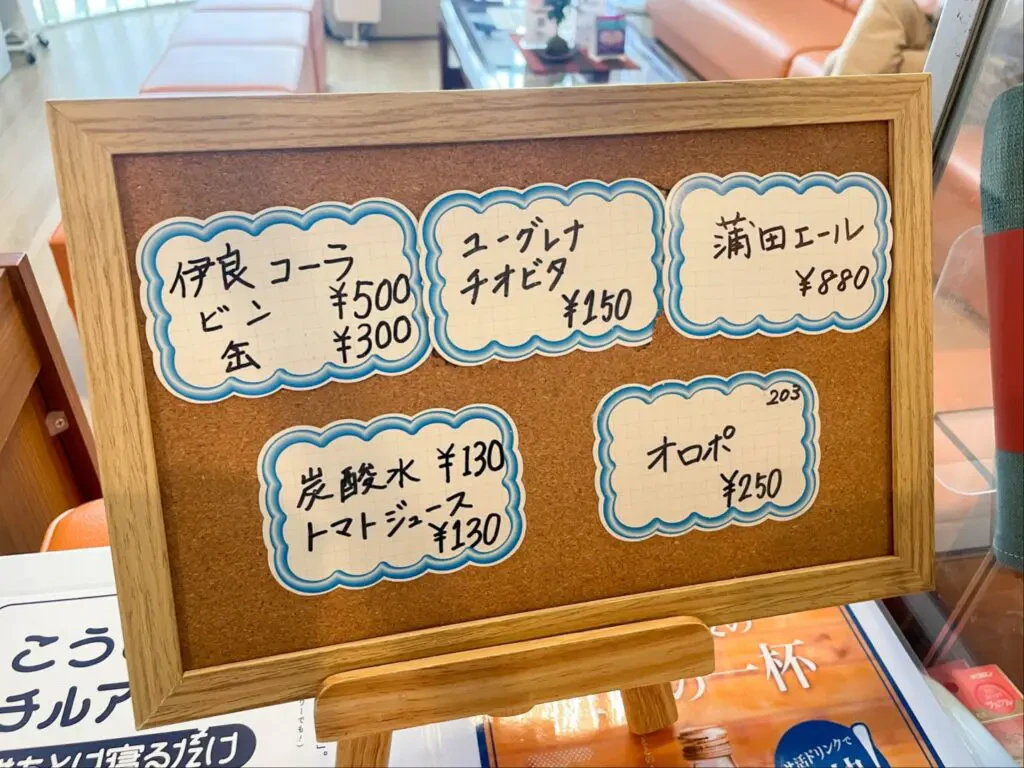 伊良コーラ
ビン ¥500
缶 ¥300
ユーグレナ
チオビタ
¥150
蒲田エール
¥880
炭酸水 ¥130
トマトジュース
¥130
203
オロポ
¥250
こう
チルア
寝るだけ
リーでも!)
の一杯
活ドリンクで